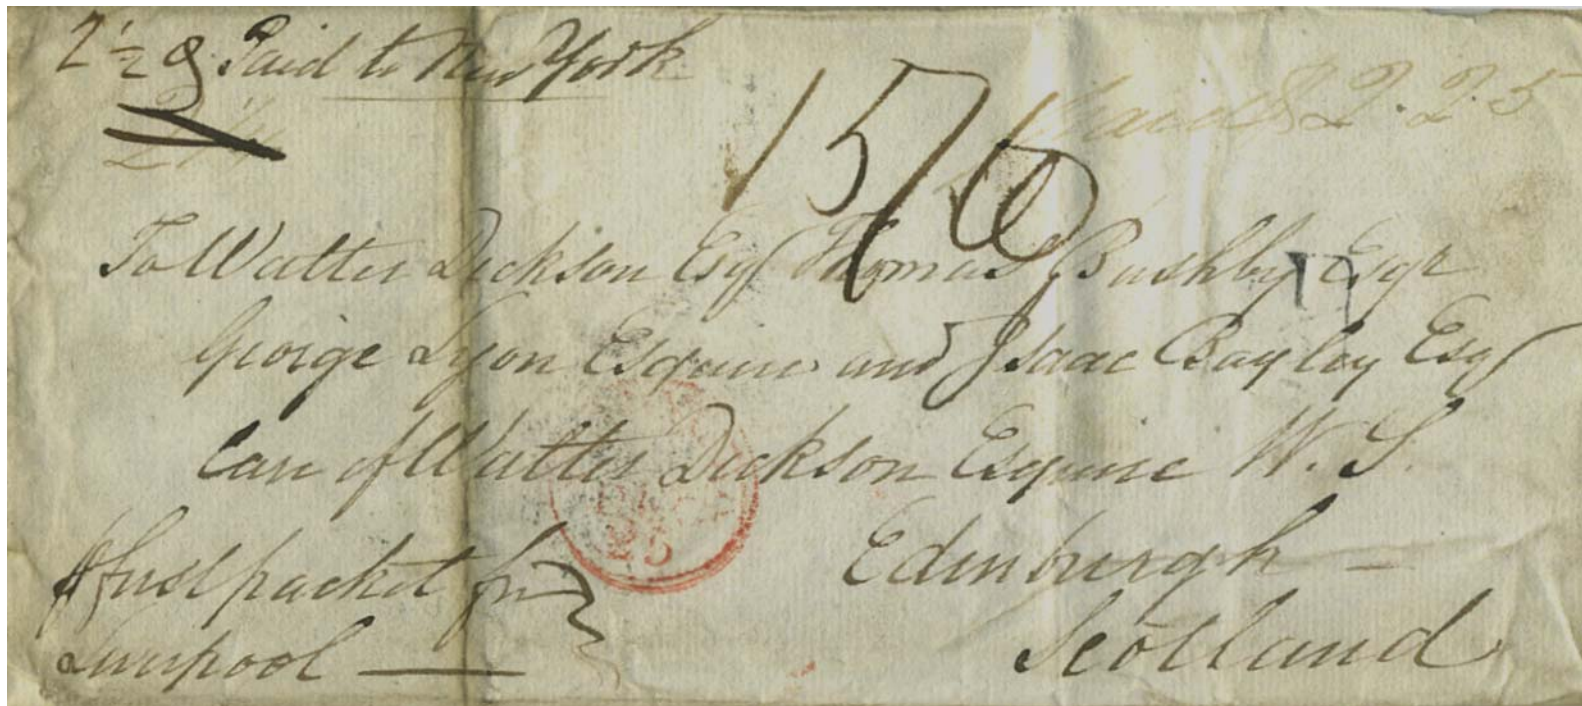 2½ oz Paid to New York
2¼
15/6
Paid $ 2.25
To Walter Dickson Esq Thomas Bushby Esqr
George Lyon Esquire and Isaac Bayley Esq
Care of Walter Dickson Esquire W. S.
Edinburgh —
Scotland
first packet for
Liverpool —